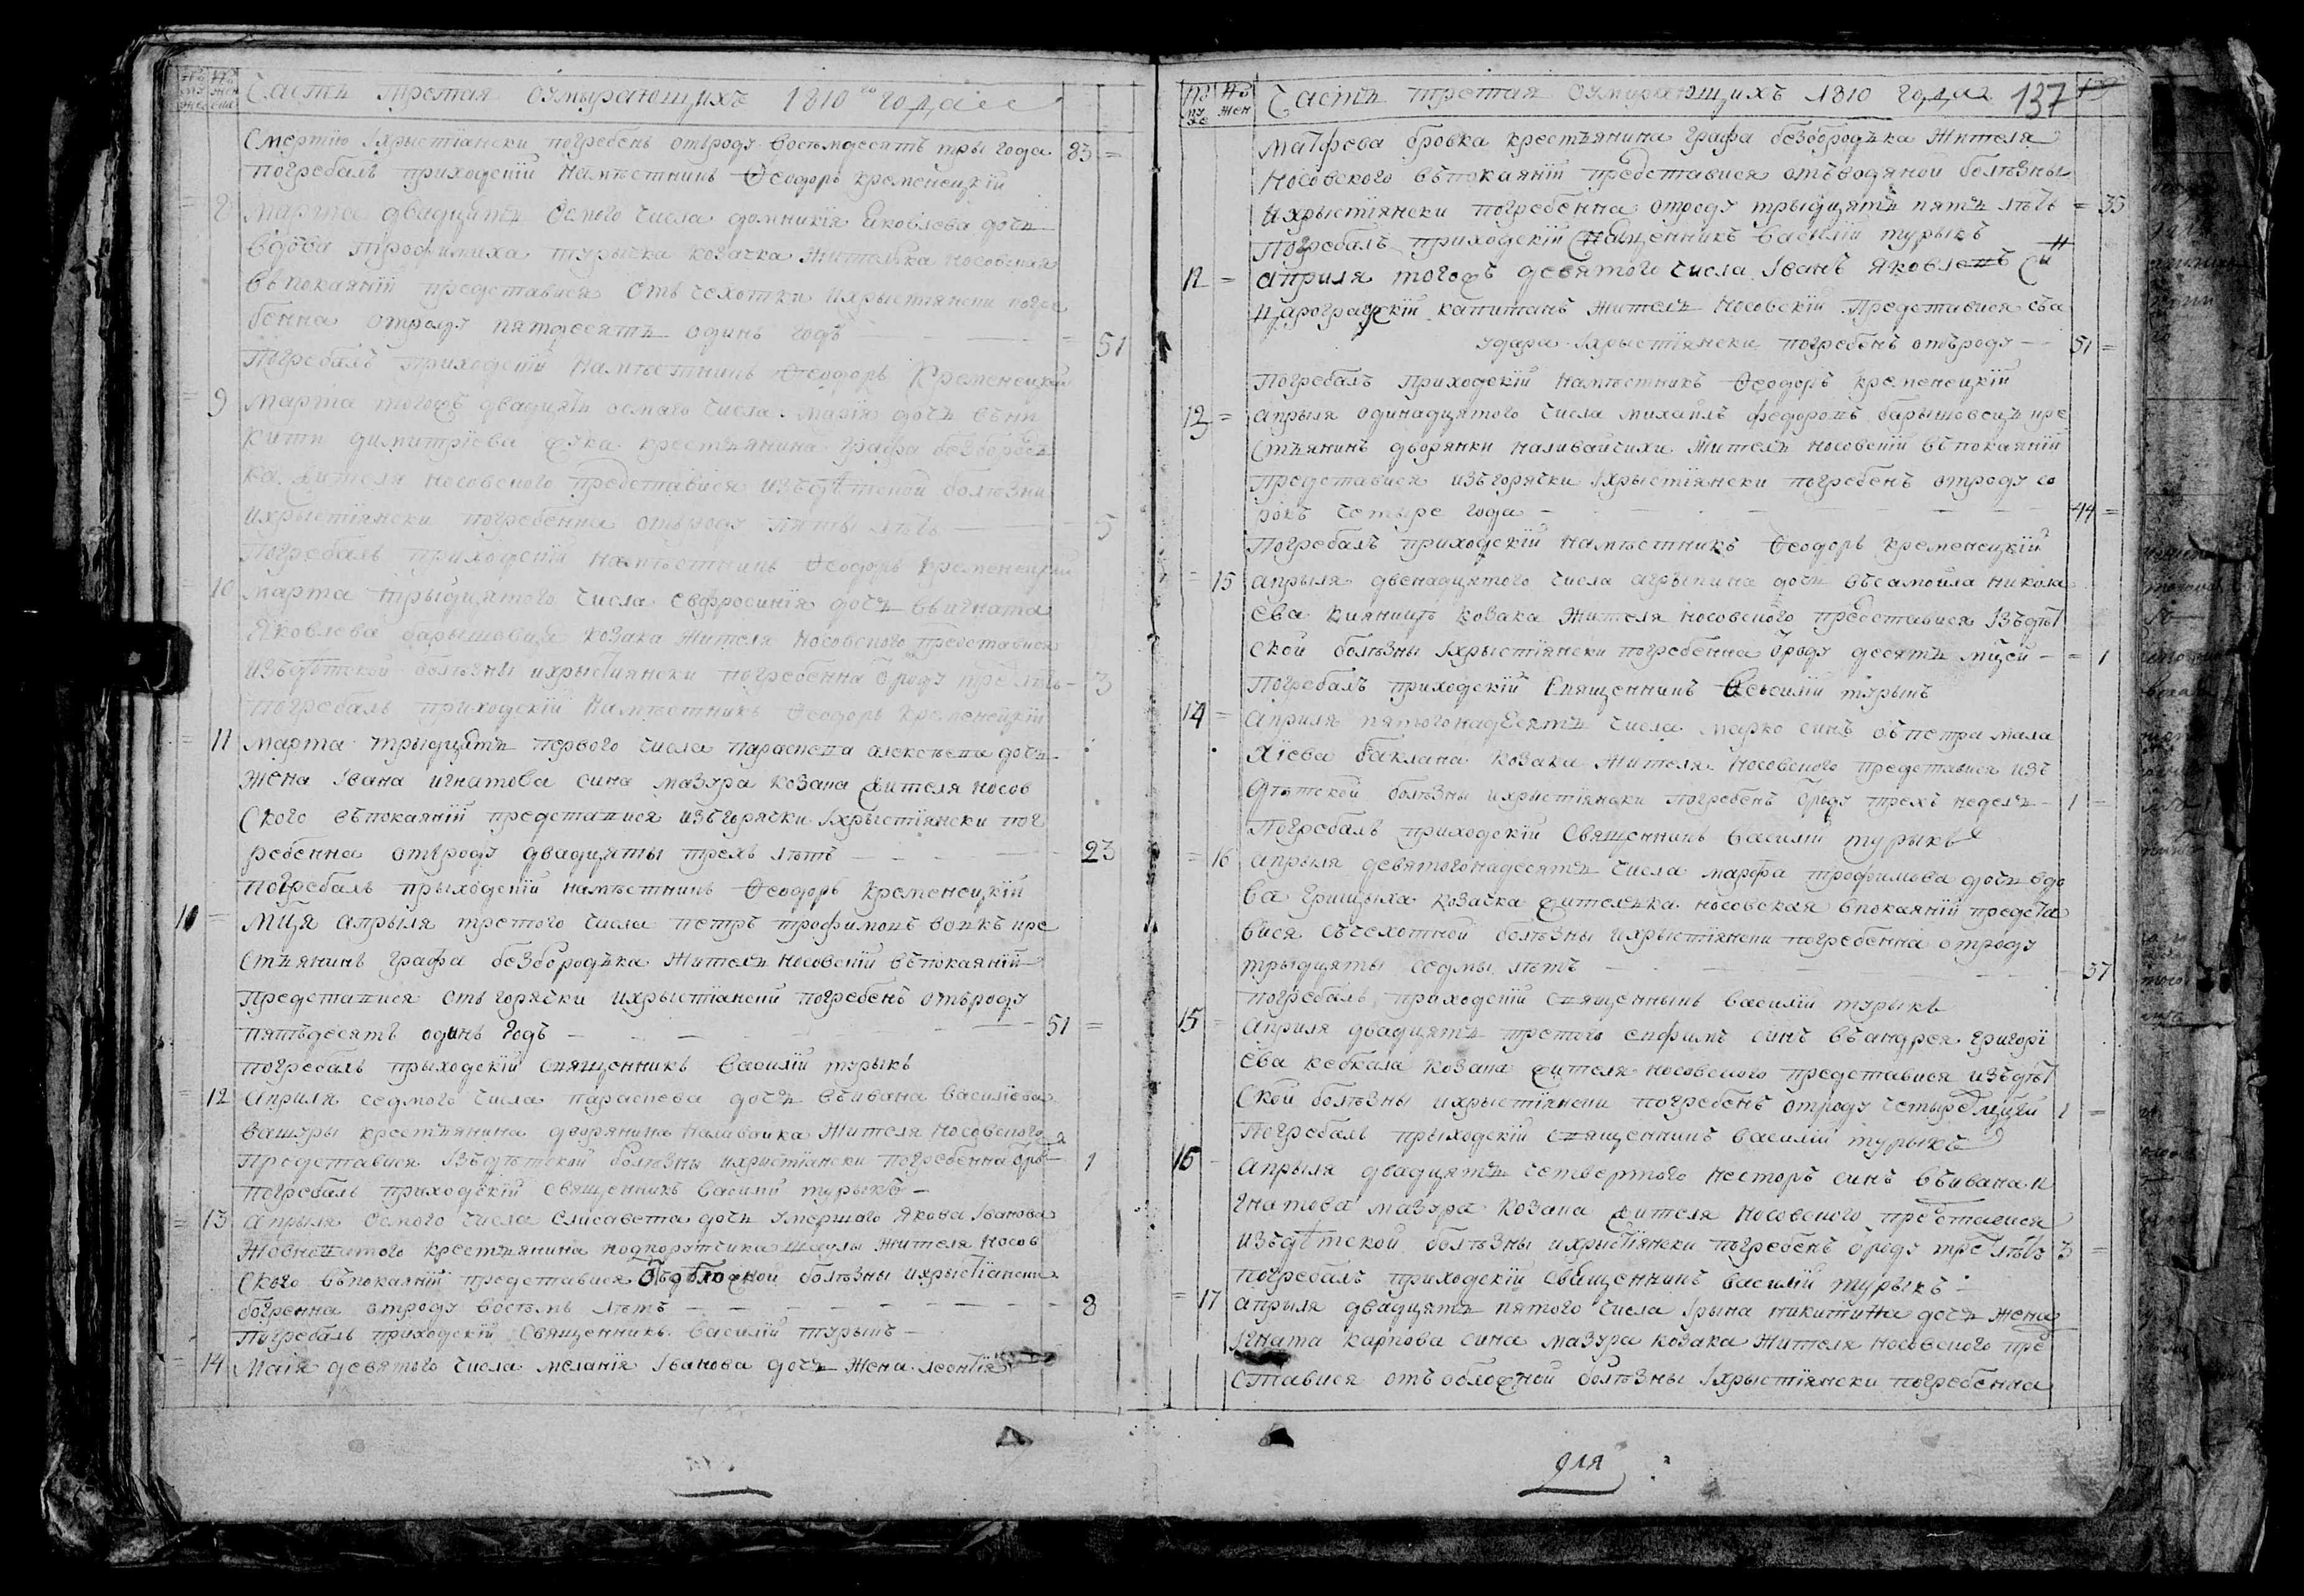 № муже № жен Часть третая оумырающихъ 1810го года
Смертїю Iхрыстїански погребенъ отъроду восемдесятъ тры года 83 =
погребалъ приходскїй намѣстникъ Ѳеодоръ Кременецкїй
= 8 марта двадцять осмого числа домникїя Яковлева дочь
вдова Трофимиха турычка козачка жителка носовская
въпокаянїй преставися отъ чехотки ихрыстїянски погре
бенна отроду пятдесятъ одинъ годъ — = 51
Погребалъ приходскїй намѣстникъ Ѳеодоръ Кременецкїй
= 9 марта тогожъ двадцять осмаго числа марїя дочь въни
кити димитрїева крестьянина графа безбородь
ка жителя носовского представися изъдѣтской болѣзни
ихрыстїянски погребенна отъроду пяты лѣтъ — 5
Погребалъ приходскїй намѣстникъ Ѳеодоръ Кременецкїй
= 10 марта трыдцятого числа евфросинїя дочь въигната
Яковлева барышовця козака жителя носовского представися
изъдѣтской болѣзны ихрыстїянски погребенна ѿроду трехъ лѣтъ — 3
Погребалъ приходскїй намѣстникъ Ѳеодоръ Кременецкїй
= 11 марта трыдцять первого числа параскева алексѣева дочь
жена Iвана игнатова сина мазура козака жителя носов
ского въпокаянїй представися изъгорячки Iхрыстїянски пог
ребенна отъроду двадцяты трехъ лѣтъ — 23
погребалъ прыходскїй намѣстникъ Ѳеодоръ Кременецкїй
10 = мця апрыля третого числа петръ трофимовъ вовкъ кре
стьянинъ графа безбородька житель носовскїй въпокаянїй
представися отъ горячки ихрыстїанскй погребенъ отъроду
пятьдесятъ одинъ годъ — 51 =
погребалъ прыходскїй священникъ василїй турыкъ
= 12 апрыля седмого числа параскева дочь въивана василїева
вашуры крестьянина дворянина наливайка жителя носовского
представися Iзъдѣтской болѣзны ихристїански погребенна 1
погребалъ приходскїй священникъ василїй турыкъ —
= 13 апрыля осмого числа елисавета дочь умершого якова Iванова
крестьянина подпорутчика жителя носов
ского въпокаянїй представися болѣзны ихрыстїански
богренна отроду восѣмъ лѣтъ — 8
Погребалъ приходскїй священникъ василїй турыкъ —
= 14 маїя девятого числа меланїя Iванова дочь жена леонтїя
№ муже № жен Часть третая оумирающихъ 1810 года 137
матфева бровка крестьянина графа безбородька жителя
носовского въпокаянїй представися отъводяной болѣзны
ихрыстїянски погребенна отроду трыдцять пять лѣтъ = 35
Погребалъ приходскїй священникъ василїй турыкъ
11 = апрыля тогожъ девятого числа Iванъ яковлевъ
капитанъ житель носовскїй представися съа
удара Iхрыстїянски погребенъ отъроду — 51 =
погребалъ приходскїй намѣстникъ Ѳеодоръ Кременецкїй
12 = апрыля одинадцятого числа михайлъ федоровъ барышовецъ кре
стьянинъ дворянки наливайчихи житель носовскїй въпокаянїй
представися изъгорячки Iхрыстїянски погребенъ отроду со
рокъ четыре года — 44 =
Погребалъ приходскїй намѣстникъ Ѳеодоръ Кременецкїй
= 15 апрыля двенадцятого числа агрыпина дочь въсамойла никола
ева козака жителя носовского представися Iзъдѣт
ской болѣзны Iхрыстїянски погребенна ѿроду десять мцей — = 1
Погребалъ приходскїй священникъ василїй турыкъ
14 = апрыля пятогонадесять числа марко синъ въпетра мала
хїева баклана козака жителя носовского представися изъ
дѣтской болѣзны ихрыстїянски погребенъ ѿроду трехъ недель — 1 =
погребалъ приходскїй священникъ василїй турыкъ
= 16 апрыля девятогонадесять числа марфа трофимова дочь вдо
ва грицыха козачка жителька носовская впокаянїй предста
вися съчехотной болѣзны ихрыстїянски погребенна отроду
трыдцяты седмы лѣтъ — 37
погребалъ приходскїй священникъ василїй турыкъ
15 = апрыля двадцять третого евфимъ синъ въандрея григорї
ева кебкала козака жителя носовского представися изъдѣт
ской болѣзны ихрыстїянски погребенъ отроду четыре мцей 1 =
погребалъ прыходскїй священникъ василїй турыкъ
16 - апрыля двадцять четвертого несторъ синъ въивана и
гнатова мазура козака жителя носовского представися
изъдѣтской болѣзны ихрыстїянски погребенъ ѿроду трехъ лѣтъ 3 =
погребалъ приходскїй священникъ василїй турыкъ —
= 17 апрыля двадцять пятого числа Iрына никитина дочь жена
Iгната карпова сина мазура козака жителя носовского пре
ставися отъобложной болѣзны Iхрыстїянски погребенна
для